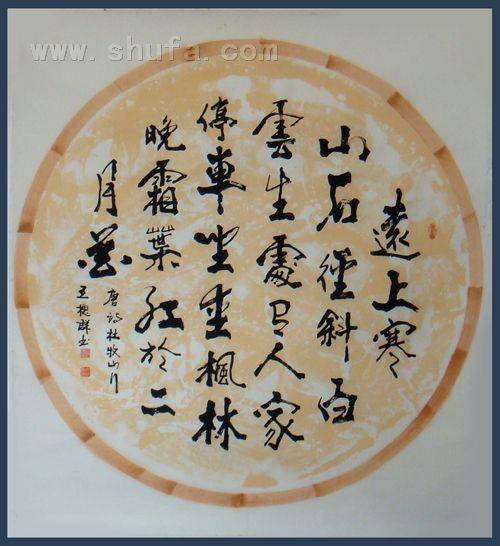 www.shufa.com
遠上寒
山石徑斜白
雲生處有人家
停車坐愛楓林
晚霜葉紅於二
月花
唐詩杜牧山行
王群书